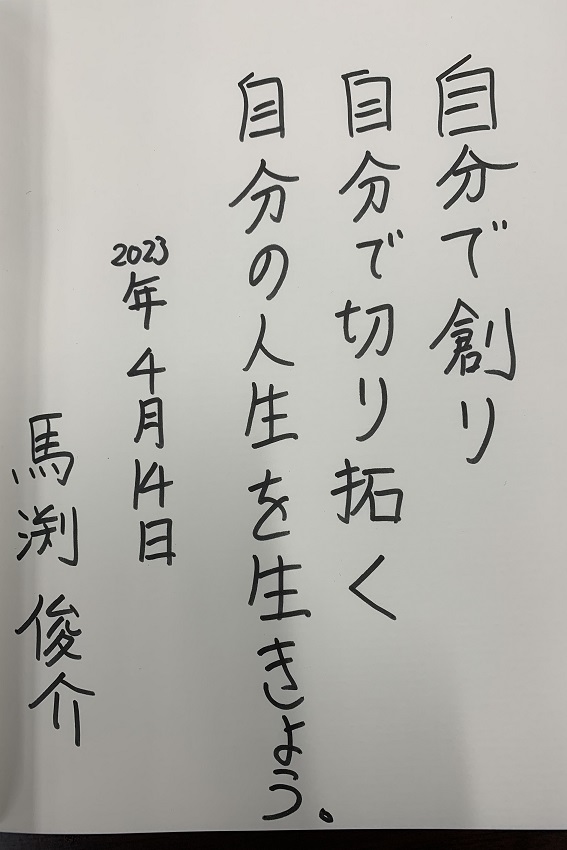 自分で創り
自分で切り拓く
自分の人生を生きよう。
2023年4月14日
馬渕俊介